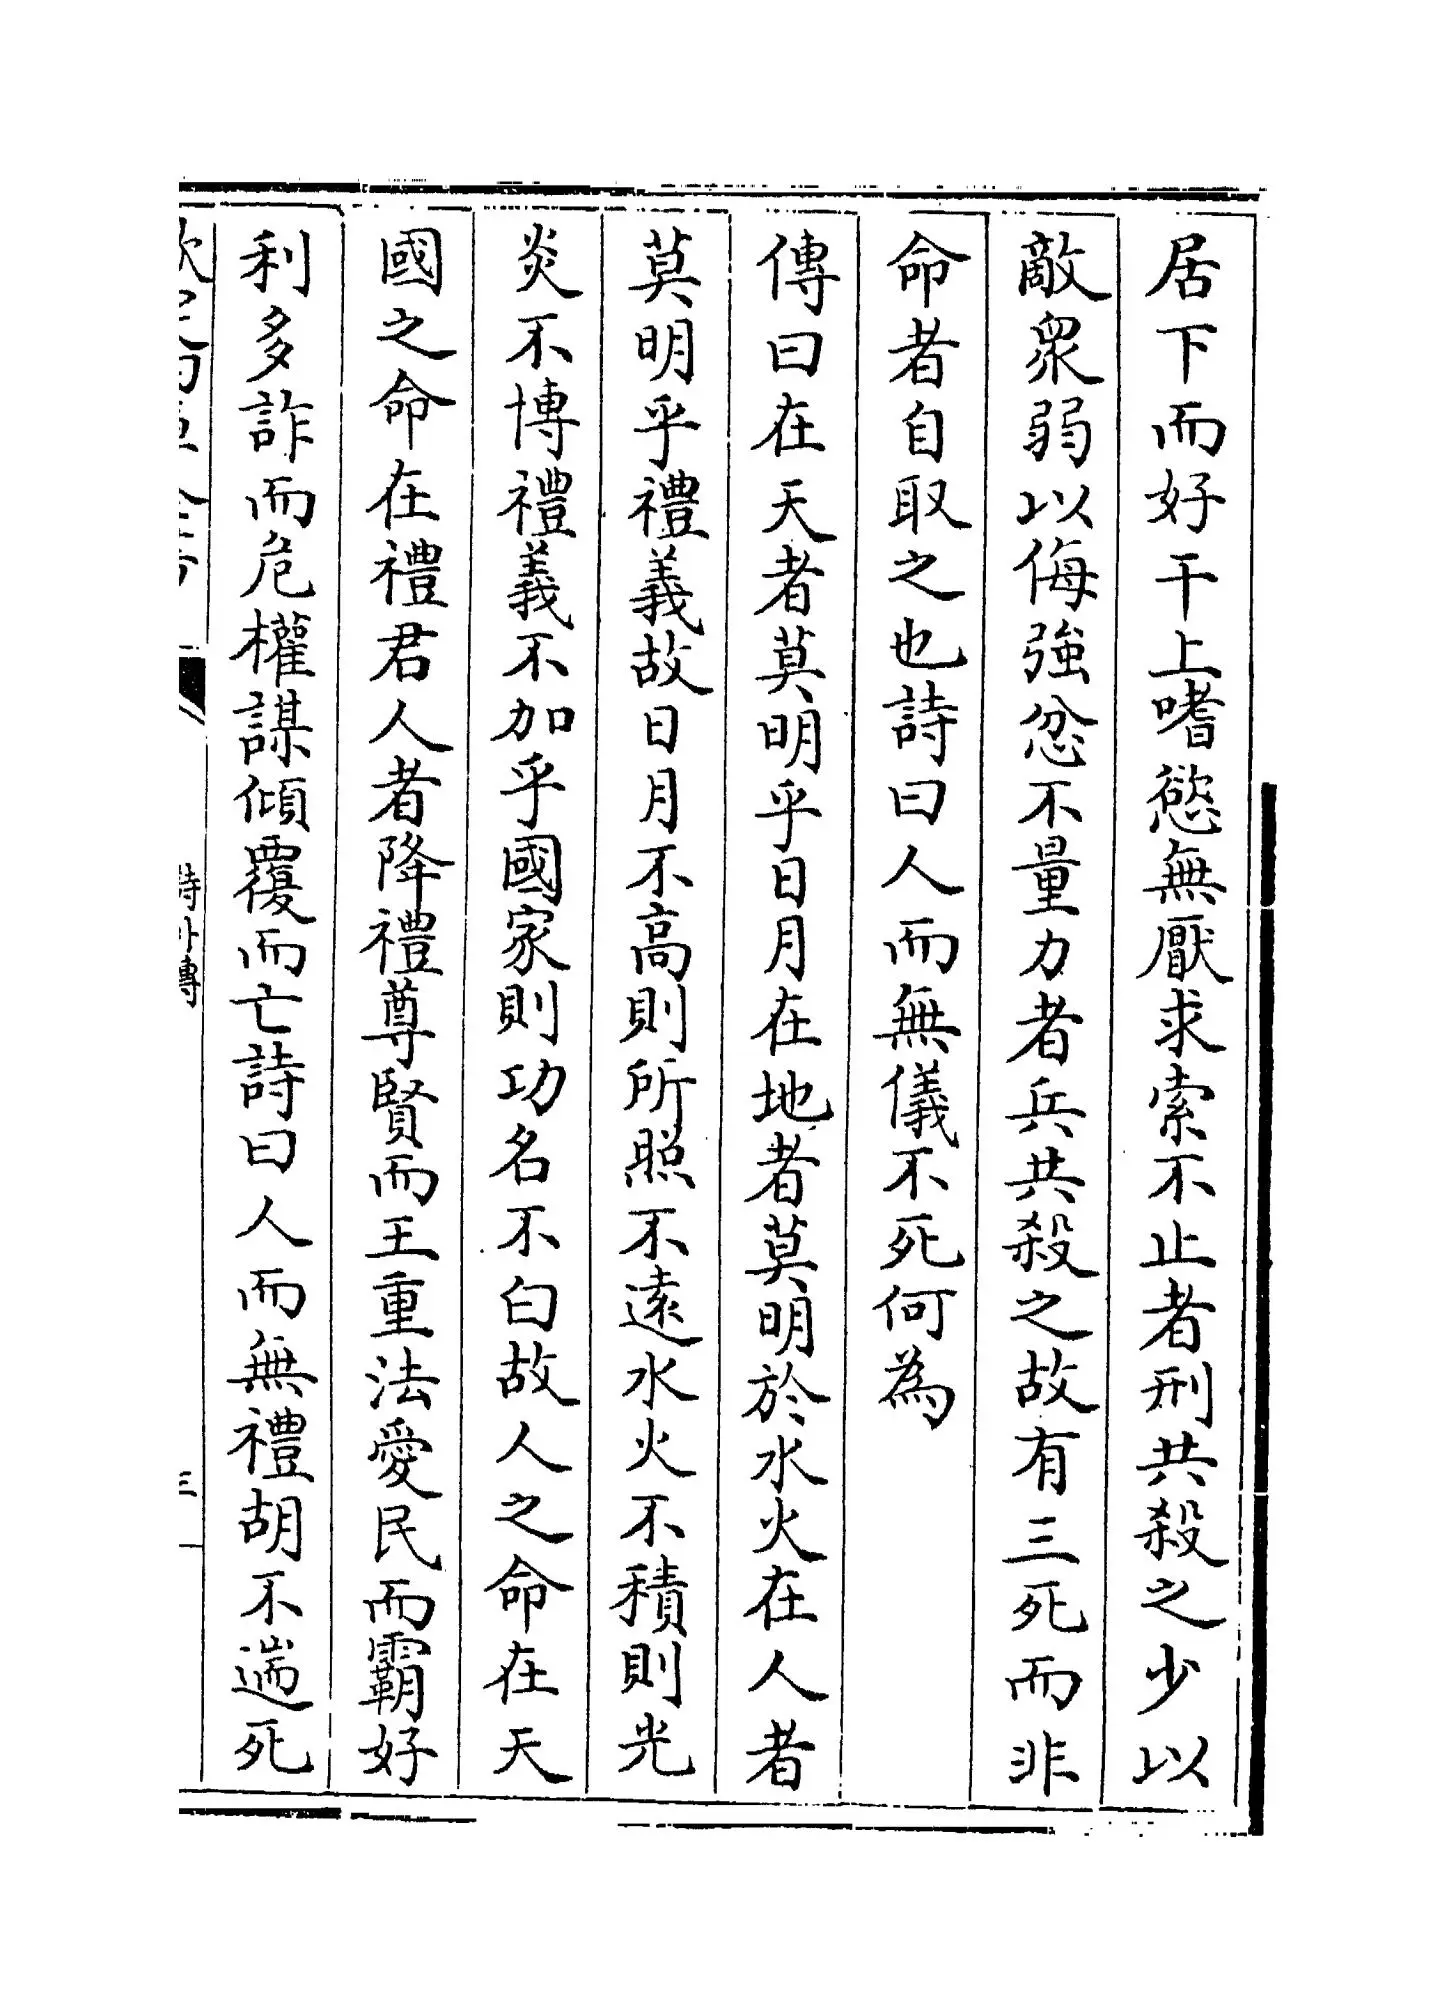 居下而好干上嗜慾無厭求索不止者刑共殺之少以
敵衆弱以侮強忿不量力者兵共殺之故有三死而非
命者自取之也詩曰人而無儀不死何為
傳曰在天者莫明乎日月在地者莫明於水火在人者
莫明乎禮義故日月不高則所照不遠水火不積則光
炎不博禮義不加乎國家則功名不白故人之命在天
國之命在禮君人者降禮尊賢而王重法愛民而霸好
利多詐而危權謀傾覆而亡詩曰人而無禮胡不遄死
詩外傳
三